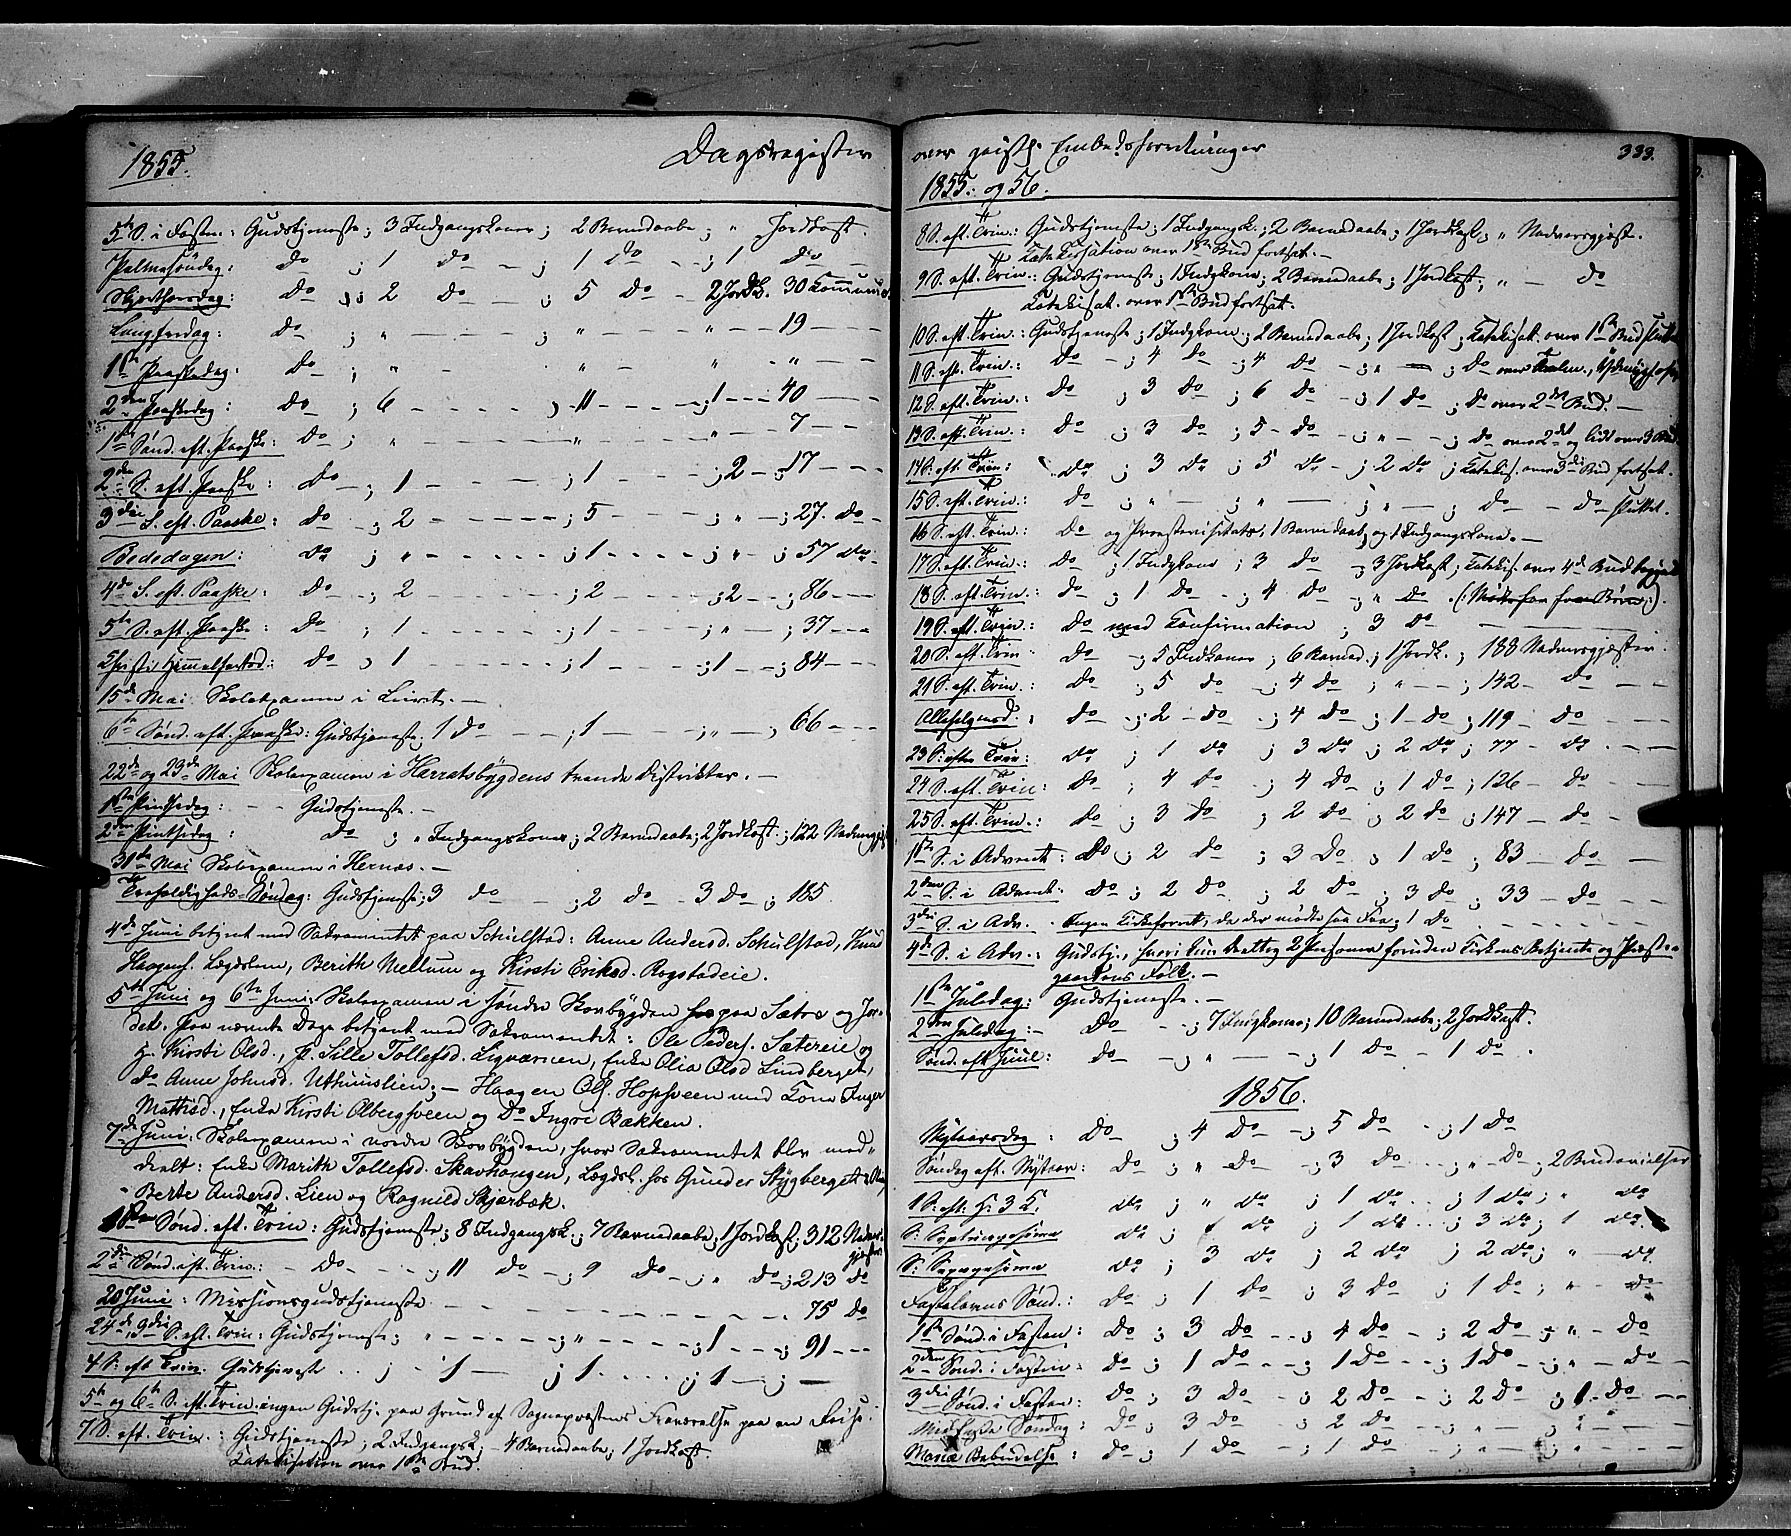 1855.
Dagsregister
5te S. i Fasten: Gudstjeneste; 3 Indgangskoner; 2 Barnedaabe; " Jordkast.
Palmesöndag: Do ; 1 Do — ; 1 Do — 1 Do —
Skjerthorsdag: Do ; 2 Do — ; 5 Do — 2 Jordk. 30 Commun
Langfredag: Do ; " — ; " — " — 19 —
1ste Paaskedag: Do ; " — " — " "
2den Paaskedag: Do ; 6 — ; 11 — ; 1 — 40 —
1ste Sönd. eft. Paaske: Do ; " — " — " — 7 —
2den S. eft. Paaske: Do — ; 1 — ; 1 — ; 2 — ; 17 —
3die S. eft. Paaske: Do — ; 2 — ; 5 — ; " — ; 27. Do —
Bededagen: Do ; " — ; 1 — ; " — ; 57 Do —
4de S. eft. Paaske: Do — ; 2 — ; 2 — ; 2 — ; 86 —
5te S. eft. Paaske: Do ; 1 — ; 1 — ; " — ; 37 —
Christi Himmelfartsd: Do ; 1 — ; 1 — ; 1 — ; 84 —
15de Mai Skoleexamen i —
6te Sönd. eft. Paaske: Gudstjeneste; 1 Do — ; 1 — ; " — ; 66 —
22de og 23de Mai Skoleexamen i Herratsbÿgdens trende Distrikter. —
1ste Pintsedag: — Gudstjeneste. —
2den Pintsedag: Do ; " Indgangskoner; 2 Barnedaabe; 2 Jordkast; 122
31te Mai Skoleexamen i Hernæs. —
Trefoldigheds-Söndag: Gudstjeneste; 3 Do — ; 2 Do — 3 Do ; 185.
4de Juni betjent med Sakramentet paa Schulstad: Anne Andersd. Schulstad, Knud
Haagens. Lægdslem, Berith Mellum og Kirsti Eriksd. Rogstadeie.
5te Juni og 6te Juni Skoleexamen i söndre Skovbÿgden paa Sætre og
det. Paa nævnte Dage betjent med Sakramentet: Ole Peders. Sætereie og
H. Kirsti Olsd., P. Sille Tollefsd. Ligværnen, Enke Olia Olsd Lindberget,
Do Anne Johnsd. Uthuuslien; — Haagen Ols. Hopsveen med Kone Inger
Mathisd., Enke Kirsti Olbergsveen og Do Ingri Bækken.
7de Juni: Skoleexamen i nordre Skovbÿgden, hvor Sakramentet blev med-
deelt: Enke Marith Tollefsd. Skavhougen, Lægdsl. hos Gunder Stÿgberget:
Berte Andersd. Lien og Ragnild Skjærbæk.
1ste Sönd. eft. Trin: Gudstjeneste; 8 Indgangsk.; 7 Barnedaabe; 1 Jordkast; 312 Nadver-
gjester
2den Sönd. eft. Trin.: — Do — ; 11 Do — ; 9 Do — ; " Do ; 213 Do
20 Juni: Missionsgudstjeneste — 75 Do
24de 3die S. eft. Trin: Gudstjeneste; " — ; " — ; 1 — 91 —
4 S. eft Trin. Gudstjeneste . . ; — 1 — ; 1 . . . . ; 1 — ; —
5te og 6te S. eft. Trin. ingen Gudstj. paa Grund af Sognepræstens Fraværelse paa en Reise.
7 S. eft. Trin.: Gudstjeneste; 2 Indgangsk; 4 Barnedaabe; 1 Jordkast.
Catechisation over 1ste Bud.
over geistl. Embedsforretninger
333.
1855: og 56.
8 S. eft. Trin: Gudstjeneste; 1 Indgangsk.; 2 Barnedaabe; 1 Jordkast; " Nadvergjæst.
Catekisation over 1ste Bud fortsat. —
9 S. eft. Trin: Gudstjeneste; 1 Indgkone; 2 Barnedaabe; 1 Jordkast; " — Do
Catekisat. over 1ste Bud fortsat.
10 S. eft. Trin: Gudstjeneste; 1 Indgkone; 2 Barnedaabe; 1 Jordkast; Katekisat. over 1ste Bud sluttet
11 S. eft. Trin.: Do — ; 4 Do — ; 4 Do — ; " — ; Do over
12 S. eft. Trin.: Do ; 3 Do ; 6 Do — ; 1 Do ; Do over 2det Bud. —
13 S. eft. Trin: Do ; 3 Do ; 5 — Do — ; " — ; Do over 2det og lidt over 3 Bud
14 S. eft. Trin: Do ; 3 Do ; 5 Do — ; 2 Do ; Katekis. over 3die Bud fortsat.
15 S. eft. Trin: Do ; " — ; " — ; " — ; Do — Do sluttet.
16 S. eft. Trin: Do og Provstevisitats, 1 Barnedaab og 1 Indgangskone. —
17 S. eft. Trin: Do ; 1 Indgkone ; 3 Do ; 3 Jordkast; Katekis. over 4de Bud begyndt
18 S. eft. Trin: Do ; 1 Do — ; 4 Do — ; " Do .
19 S. eft. Trin: Do med Confirmation ; 3 Do —
20 S. eft. Trin: Do ; 5 Indkoner ; 6 Barned.; 1 Jordk. ; 188 Nadvergjæster.
21 S. eft. Trin.: Do ; 5 Do — ; 4 Do ; " — ; 142 — Do —
Allehelgensd.: Do ; 2 — Do ; 4 Do ; 1 — Do ; 119 — Do —
23 S: efter Trin: Do ; 1 Do ; 3 Do ; 2 Do ; 77 — Do —
24 S. eft. Trin: Do ; 4 Do — ; 4 Do ; 1 Do ; 126 — Do —
25 S. eft. Trin.: Do ; 3 Do ; 2 Do ; 2 Do ; 147 — Do —
1ste S. i Advent: Do ; 2 Do ; 3 Do ; 1 Do ; 83 — Do —
2den S. i Advent. Do ; 2 Do ; 2 Do ; 3 Do ; 33 — Do —
3die S. i Adv. — Ingen Kirkeforret, da der mødte saa Faa; 1 Do —
4de S. i Adv.: Gudstj., hvori kun deeltog 2 Personer foruden Kirkens Betjente og Præste-
gaardens Folk. —
1ste Juledag: Gudstjeneste. —
2den Juledag: — Do — ; 7 Indgkoner; 10 Barnedaabe; 2 Jordkast.
Sönd. eft. Juul: Do — ; " — ; 1 Do — 1 Do .
1856.
Nÿtaarsdag: Do — ; 4 Do — ; 5 Do — ; 1 Do
Söndag eft. Nÿtaar: Do — ; " Do — ; 3 Do ; " — Do ; 2 Brudevielser
1 S. eft. H. 3 K. Do ; " Do ; 1 Do ; 1 Do ; " Do
S: Septuagesima Do ; 1 Do ; 1 Do ; 3 Do ; 1 Do
S: Sexagesima Do ; 3 Do ; 2 Do ; 2 Do ; " — Do
Fastelavns Sönd.: Do ; 1 Do ; 3 Do ; 1 Do ; " — Do
1ste Sönd. i Fasten: Do ; 3 Do — ; 4 Do — ; 2 Do ; " — Do
2den Sönd. i Fasten: Do ; 1 Do — ; 1 Do — ; 1 Do — ; " — Do —
3die Sönd. i Fasten: Do ; 3 Do — ; 2 Do — ; 2 Do ; 1 Do —
Midfaste Söndag: Do ; 3 Do — ; 2 Do — ; — ; " —
Mariæ Bebudelse: Do ; 1 Do — ; 1 Do — ; — ; " —